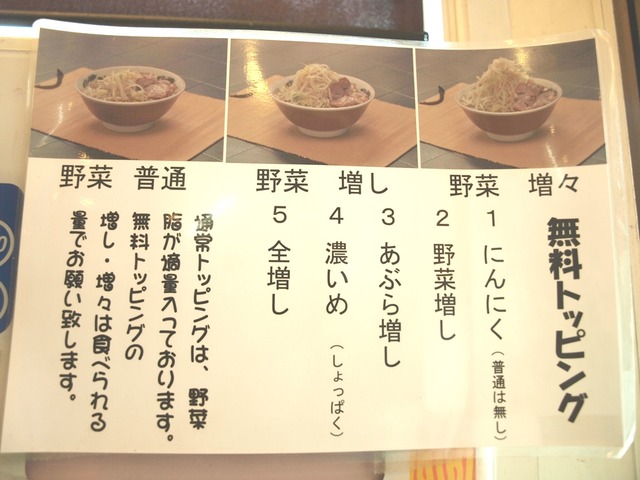 野菜 普通
野菜 増し
野菜 増々
無料トッピング
1 にんにく（普通は無し）
2 野菜増し
3 あぶら増し
4 濃いめ（しょっぱく）
5 全増し
通常トッピングは、野菜
脂が適量入っております。
無料トッピングの
増し・増々は食べられる
量でお願い致します。